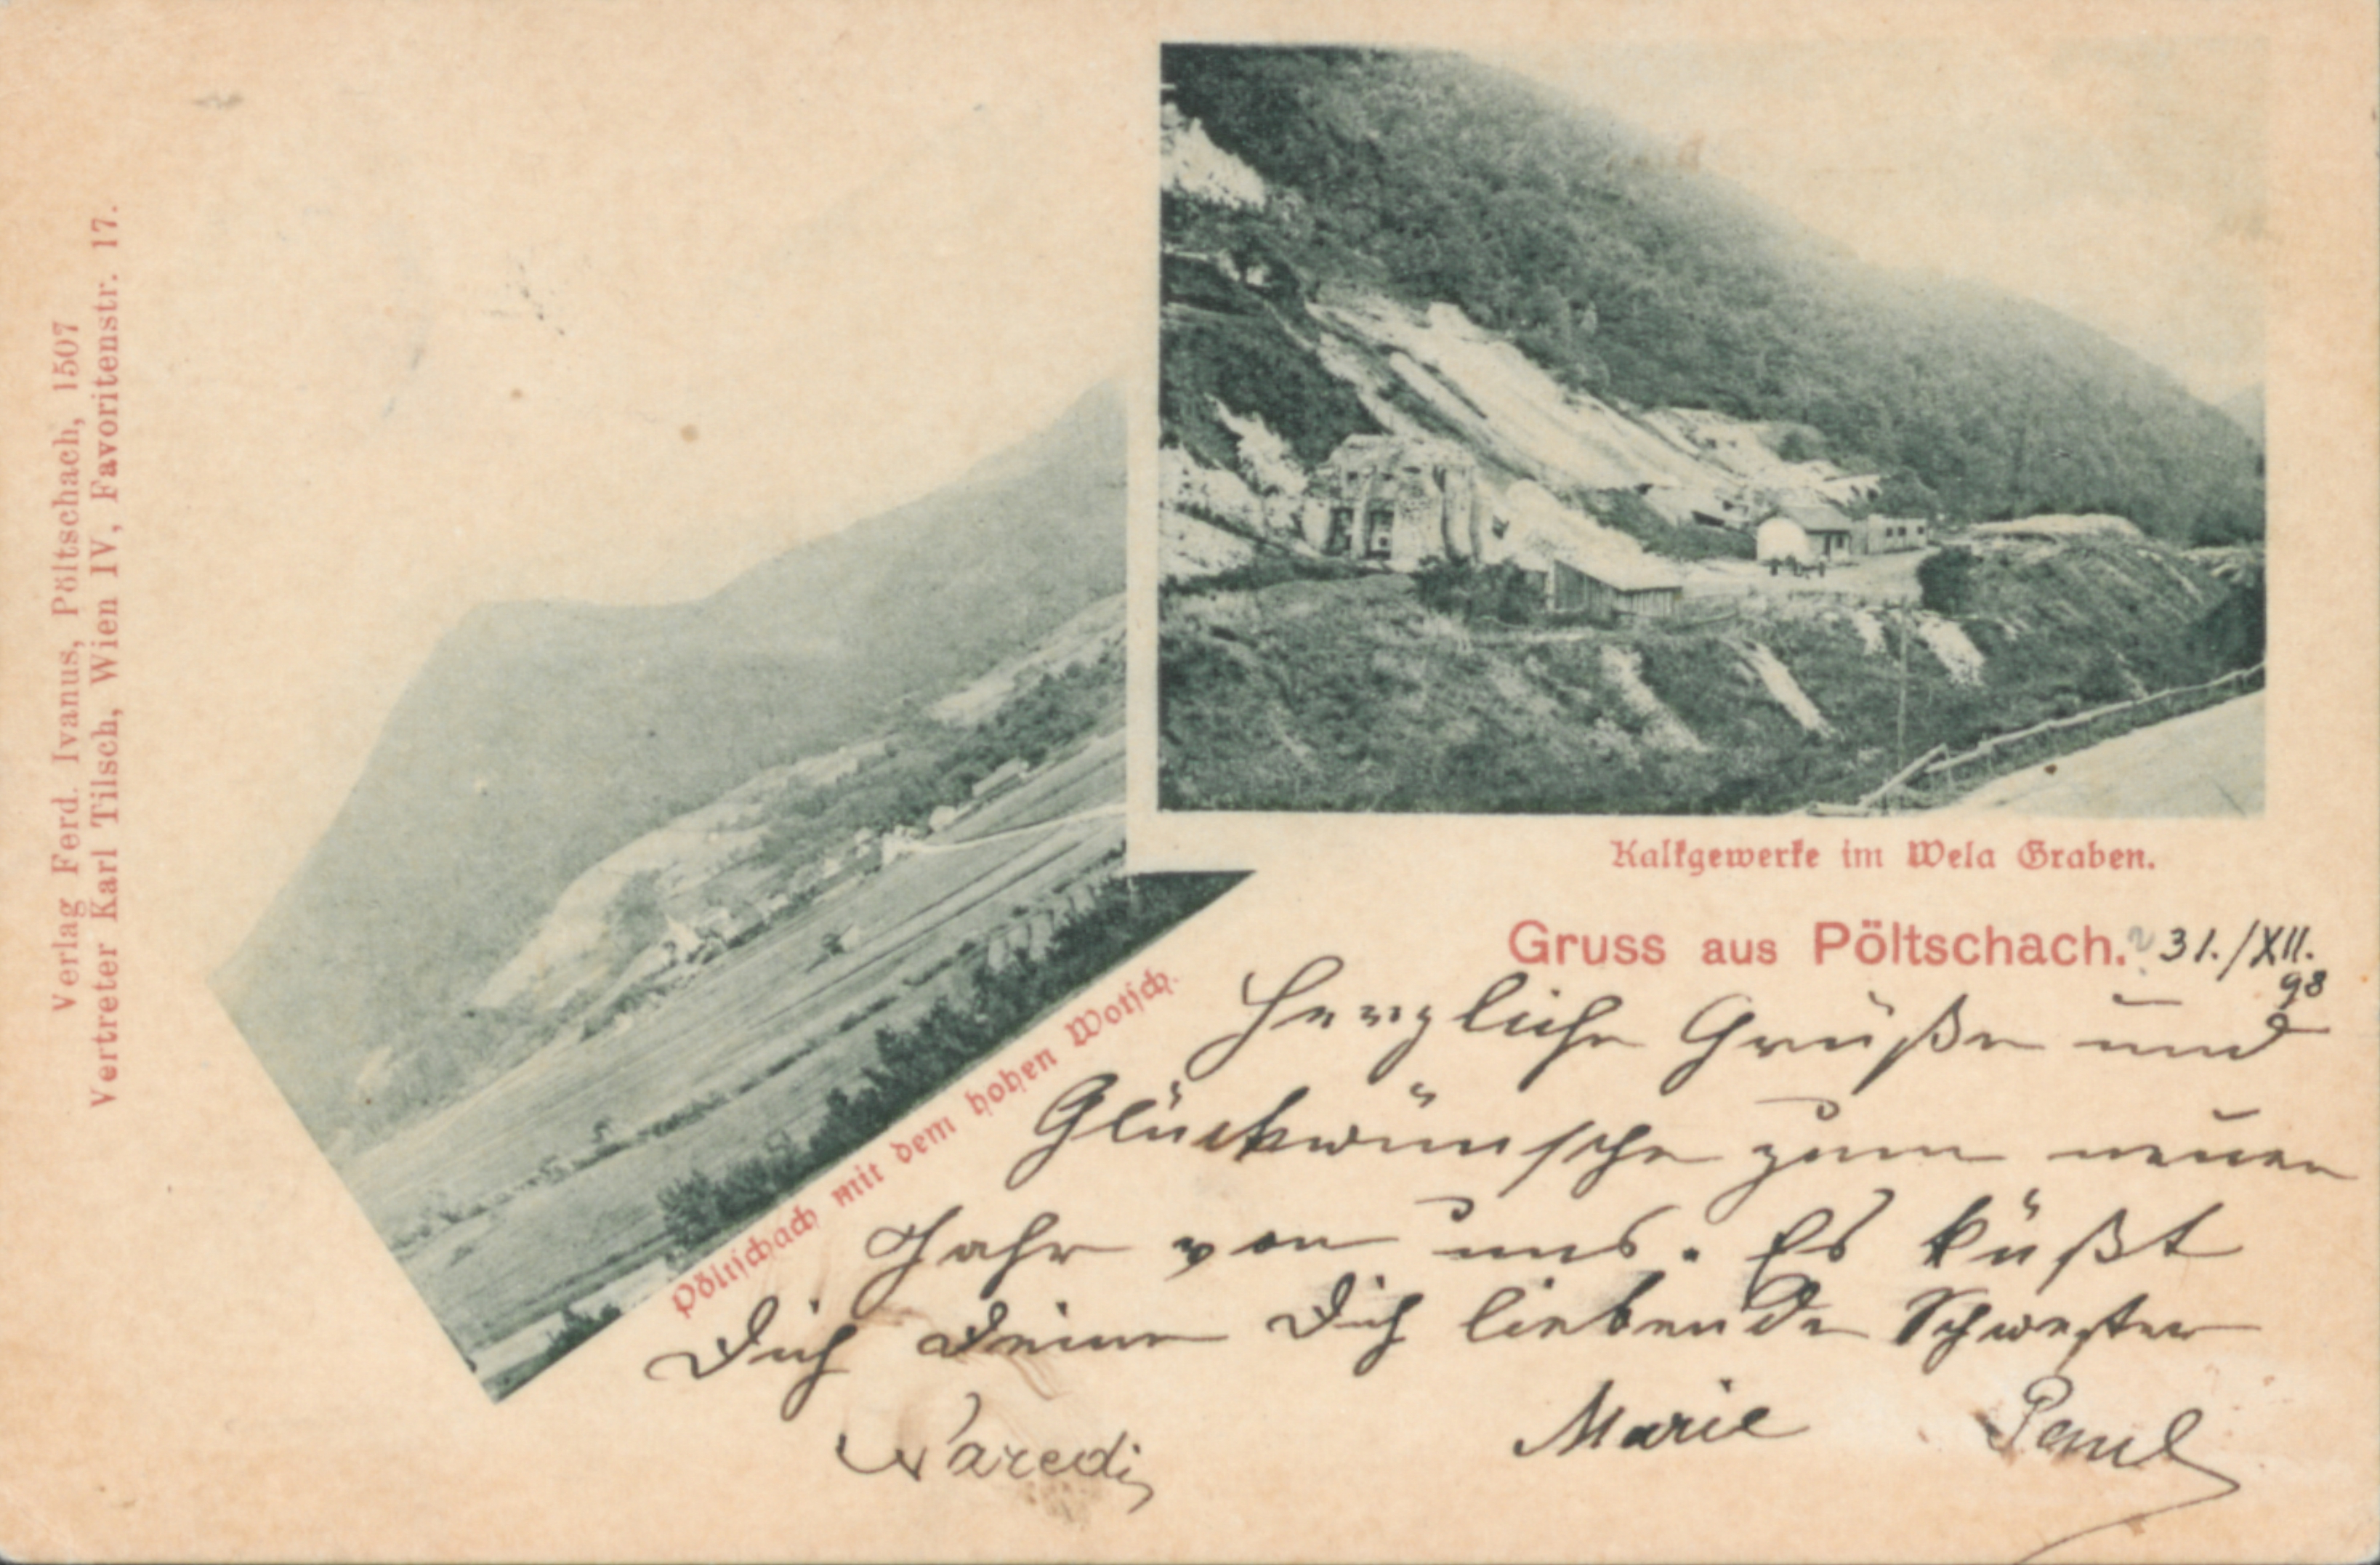 Verlag Ferd. Ivanus, Pöltschach, 1507
Vertreter Karl Tilsch, Wien IV, Favoritenstr. 17.
Kalkgewerke im Wela Graben.
Pöltschach mit dem hohen Wotsch.
Gruss aus Pöltschach. 31./XII.
98
Herzliche Grüße und
Glückwünsche zum neuen
Jahr von uns. Es küßt
Dich Deine Dich liebende Schwester
Marie Paul